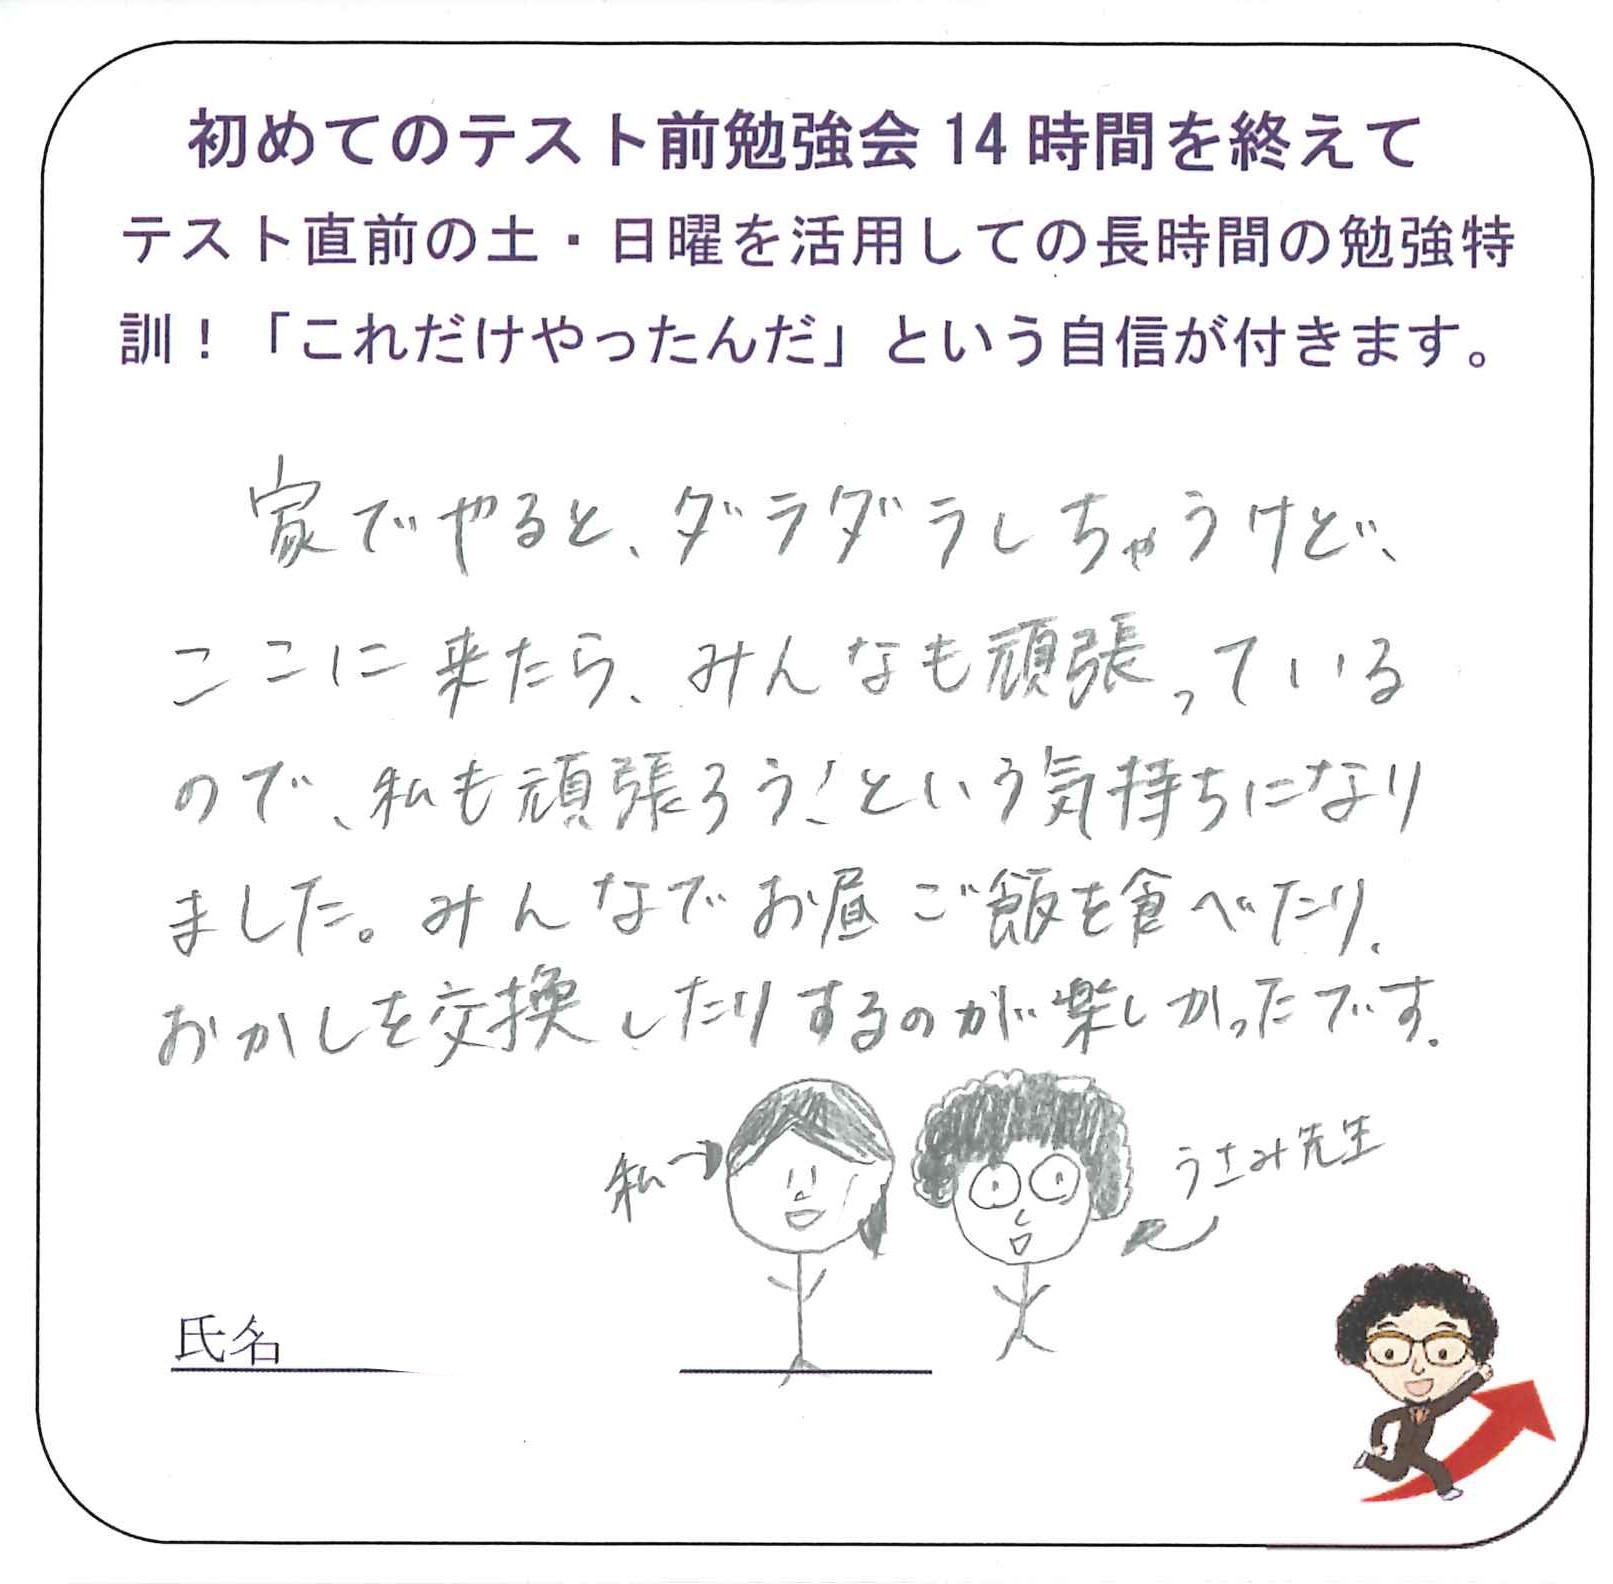 初めてのテスト前勉強会14時間を終えて
テスト直前の土・日曜を活用しての長時間の勉強特
訓！「これだけやったんだ」という自信が付きます。
家でやると、ダラダラしちゃうけど、
ここに来たら、みんなも頑張っている
ので、私も頑張ろう!という気持ちになり
ました。みんなでお昼ご飯を食べたり、
おかしを交換したりするのが楽しかったです。
私
うさみ先生
氏名